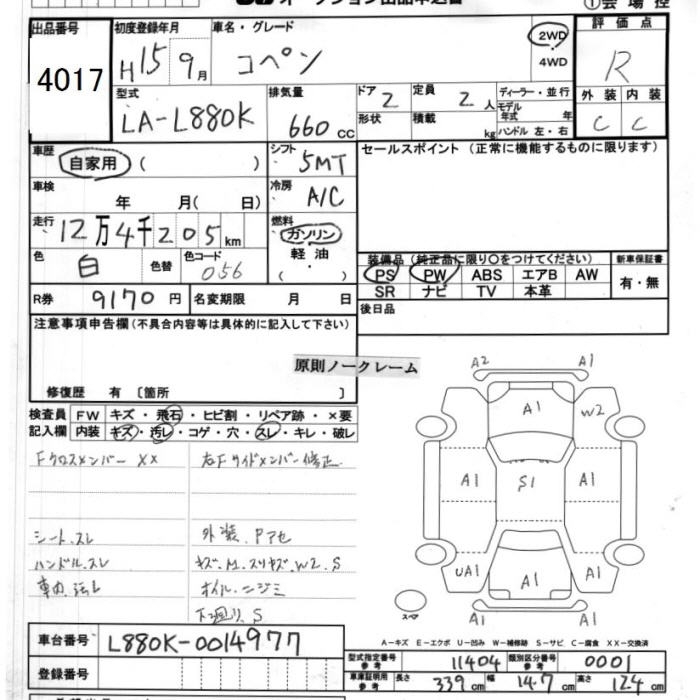 オークション出品申込書 ①会場控
出品番号 初度登録年月 車名・グレード 2WD 評価点
4017 H15年 9月 コペン 4WD R
型式 排気量 ドア 2 定員 2人 ディーラー・並行 外装 内装
LA-L880K 660cc 形状 積載 kg モデル年式 年 C C
ハンドル 左・右
車歴 自家用 ( ) シフト 5MT セールスポイント (正常に機能するものに限ります)
車検 年 月( 日) 冷房 A/C
走行 12万4千205km 燃料 ガソリン
軽油
色 白 色替 色コード 056 装備品 (純正品に限り○をつけてください) 新車保証書
PS PW ABS エアB AW 有・無
R券 9170円 名変期限 月 日 SR ナビ TV 本革
後日品
注意事項申告欄 (不具合内容等は具体的に記入して下さい)
原則ノークレーム
修復歴 有 〔箇所 〕
検査員 FW キズ・飛石・ヒビ割・リペア跡・×要
記入欄 内装 キズ・汚レ・コゲ・穴・スレ・キレ・破レ
Fクロスメンバー XX 右Fサイドメンバー修正
シート.スレ 外装.Pアセ
ハンドル.スレ キズ.M.スリキズ.W2.S
車内.汚レ オイル.ニジミ
下廻り.S
A2 A1
A1 W2
A1 S1 A1
UA1 A1 A1
スペア
A2 A1
A-キズ E-エクボ U-凹み W-補修跡 S-サビ C-腐食 XX-交換済
車台番号 L880K-0014977
型式指定番号 参考 11404 類別区分番号 参考 0001
登録番号 車庫証明用 参考 長さ 339cm 幅 147cm 高さ 124cm